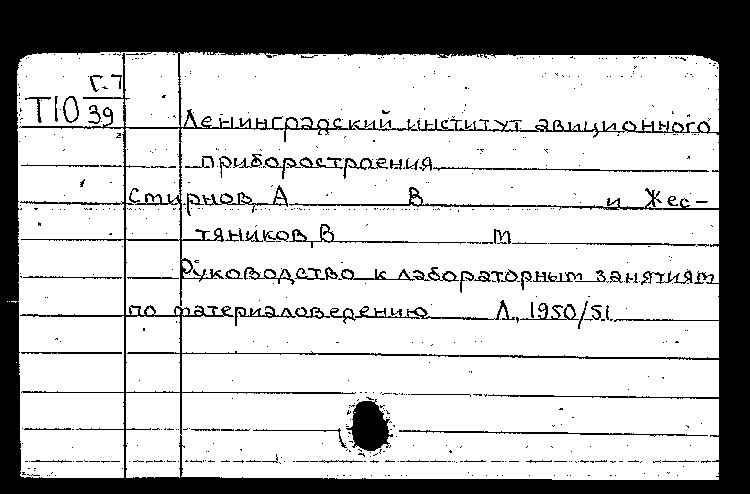 Г.7
Т10 39
Ленинградский институт авиционного
приборостроения
Смирнов, А В и Жес-
тяников, В М
Руководство к лабораторным занятиям
по материаловедению Л., 1950/51